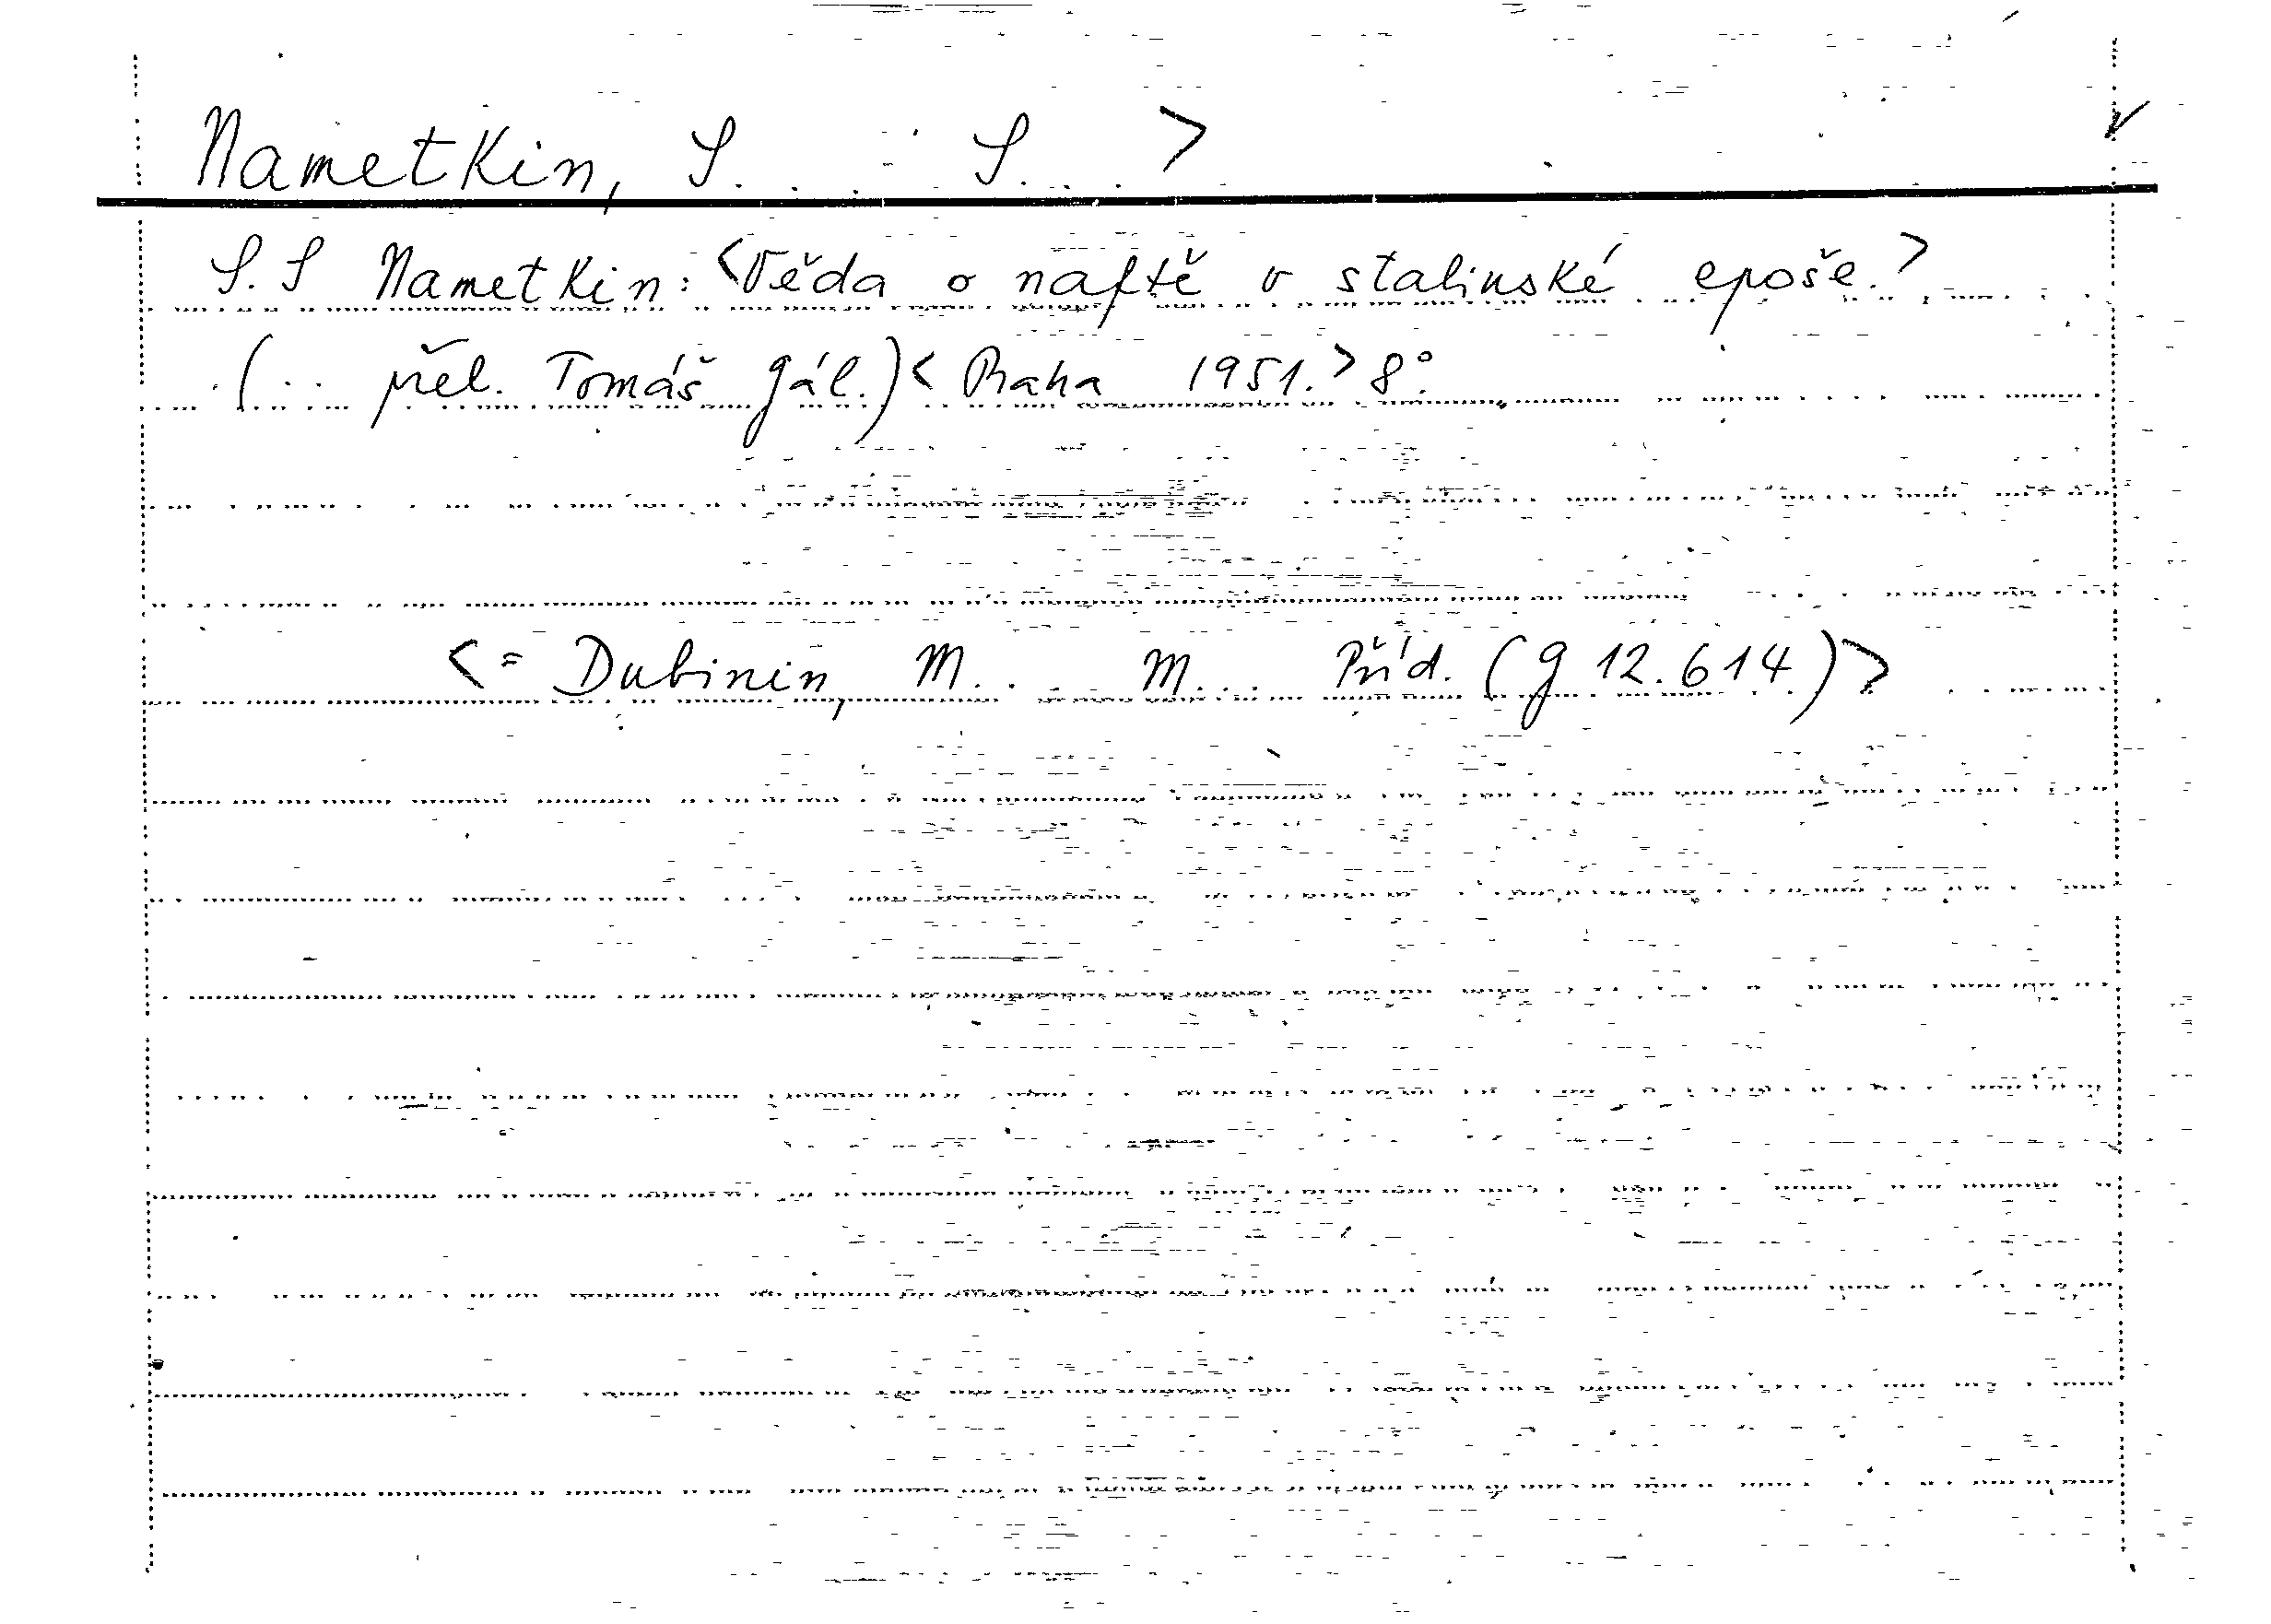 Nametkin, S. . . S. . . >
S. S Nametkin: <Věda o naftě v stalinské epoše.>
(.. přel. Tomáš Gál.) < Praha 1951. > 8°.
<= Dubinin, M. . . M. . . Příd. (g 12.614.)>